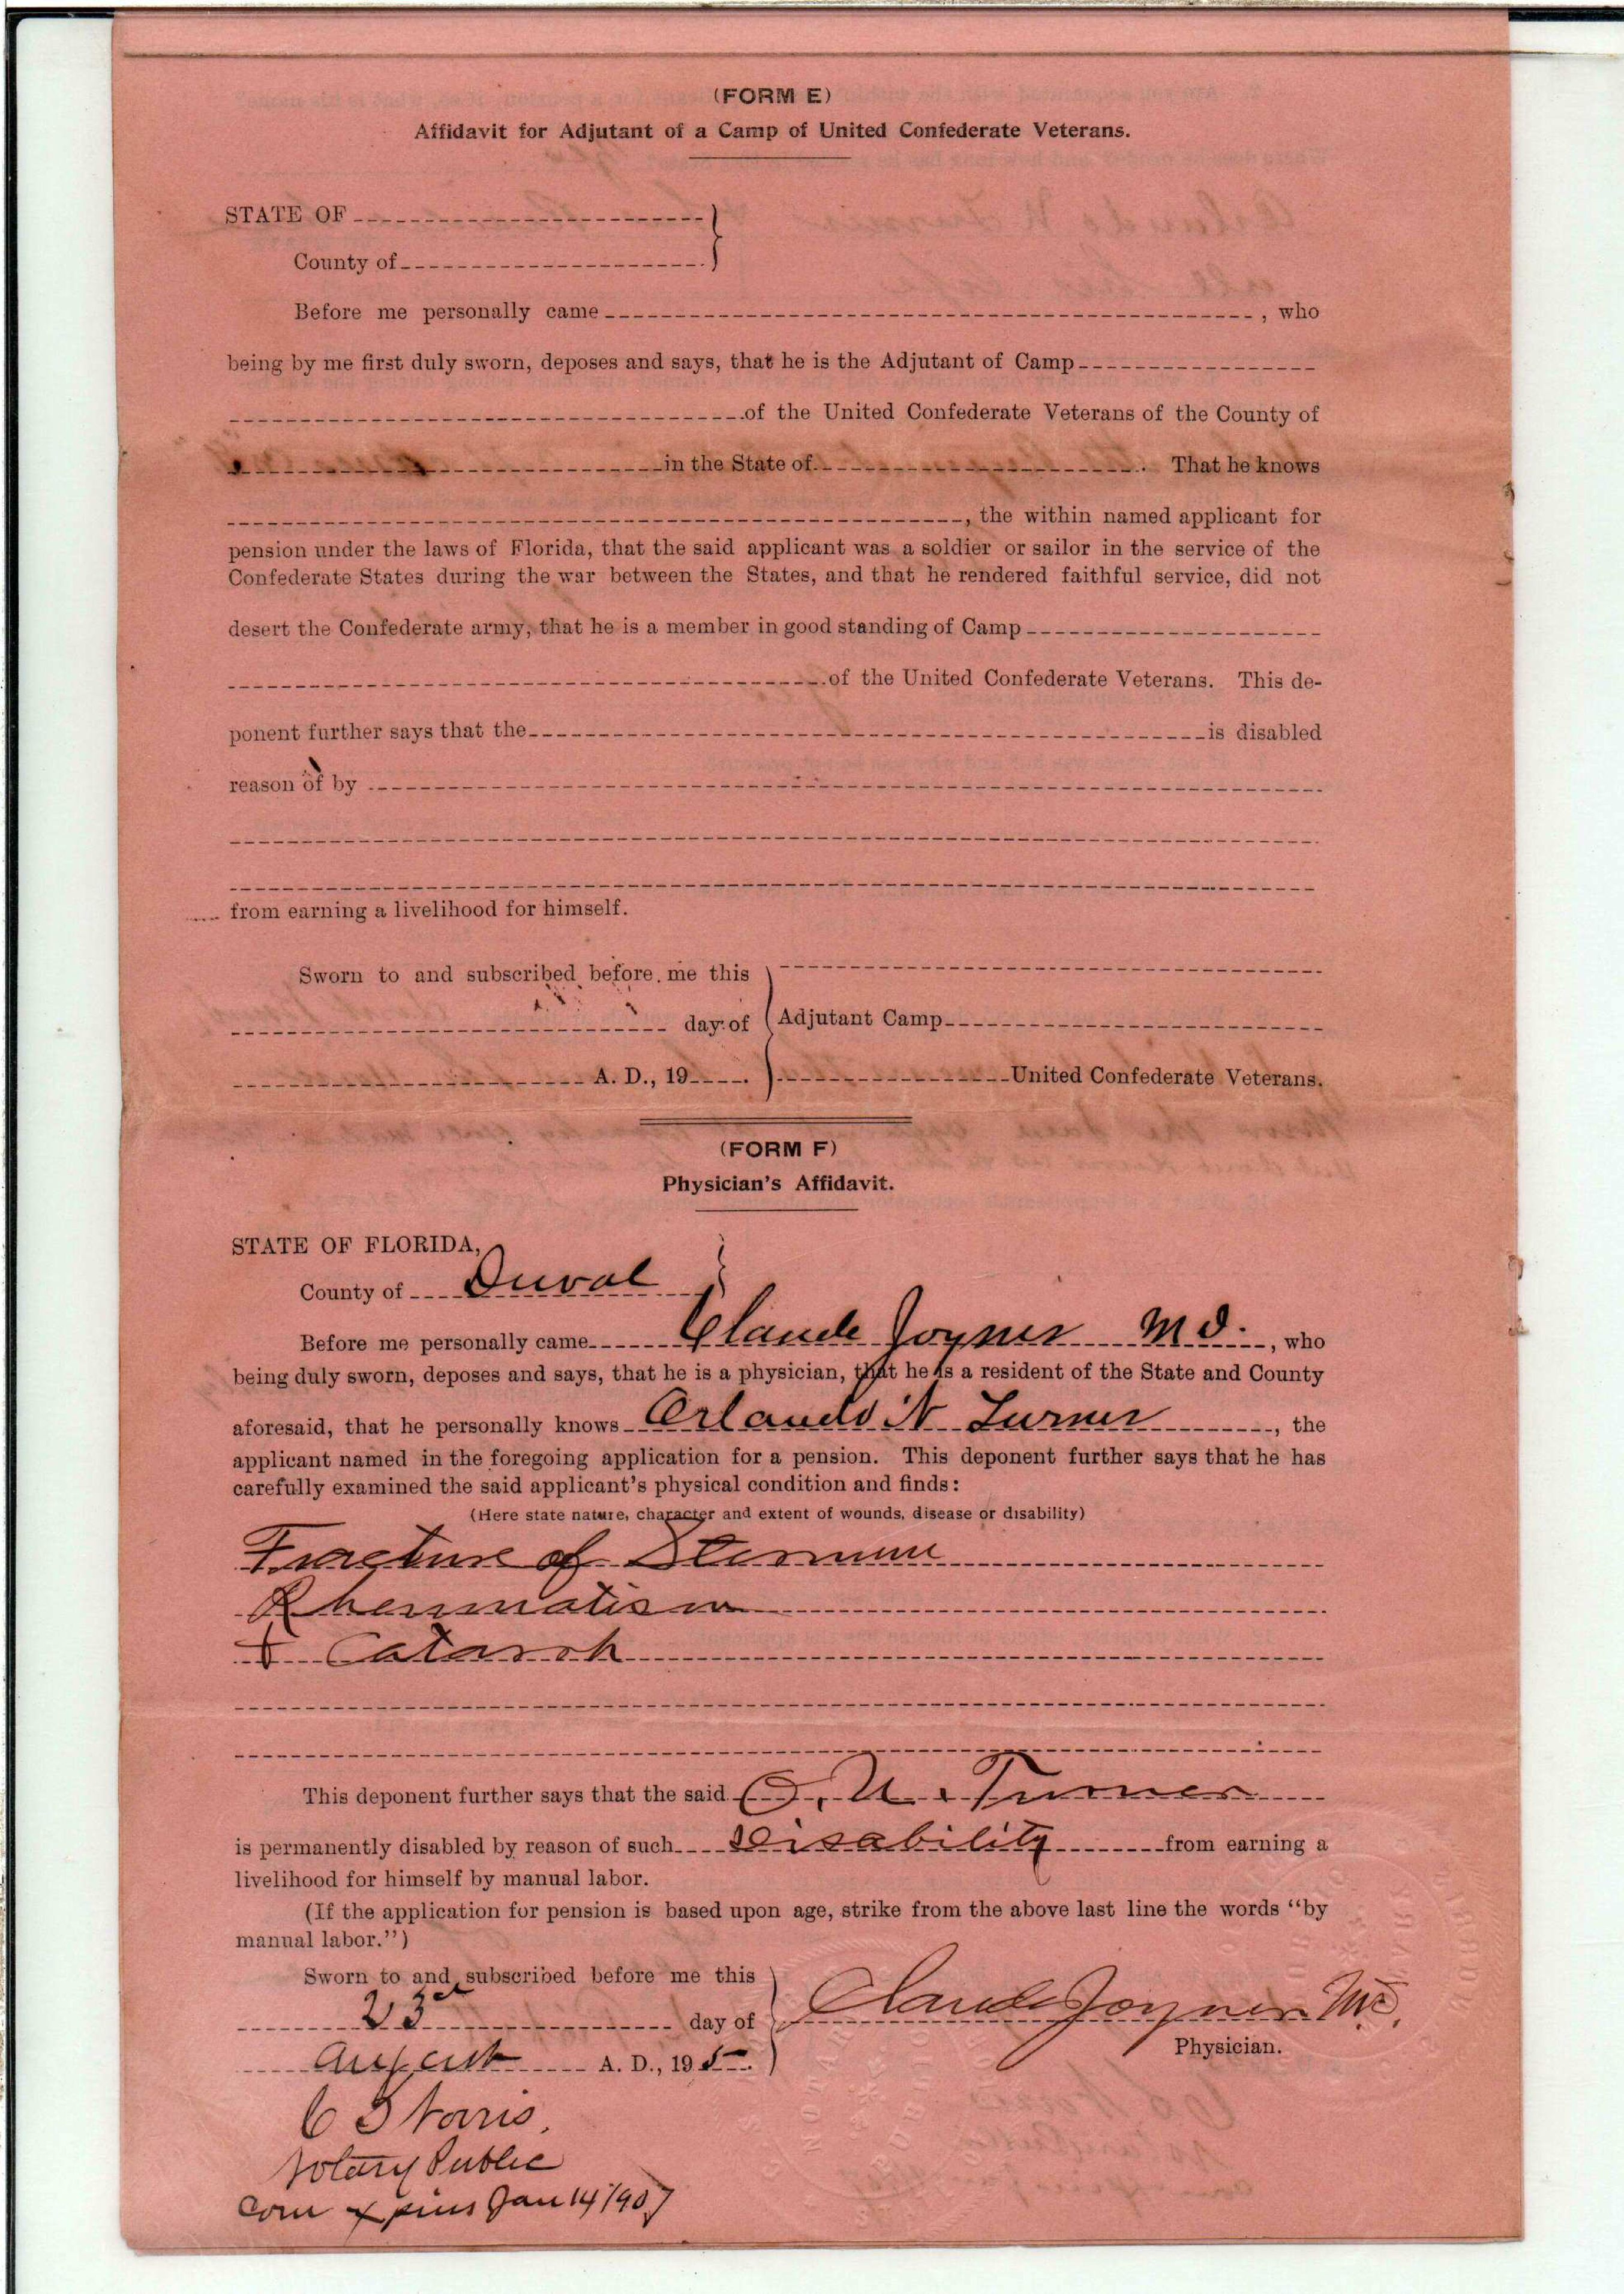 (FORM E)
Affidavit for Adjutant of a Camp of United Confederate Veterans.
STATE OF
County of
Before me personally came , who
being by me first duly sworn, deposes and says, that he is the Adjutant of Camp
of the United Confederate Veterans of the County of
in the State of . That he knows
, the within named applicant for
pension under the laws of Florida, that the said applicant was a soldier or sailor in the service of the
Confederate States during the war between the States, and that he rendered faithful service, did not
desert the Confederate army, that he is a member in good standing of Camp
of the United Confederate Veterans. This de-
ponent further says that the is disabled
reason of by
from earning a livelihood for himself.
Sworn to and subscribed before me this
day of
A. D., 19 .
Adjutant Camp
United Confederate Veterans.
(FORM F)
Physician's Affidavit.
STATE OF FLORIDA,
County of Duval
Before me personally came Claude Joyner M D. , who
being duly sworn, deposes and says, that he is a physician, that he is a resident of the State and County
aforesaid, that he personally knows Orlando N Turner , the
applicant named in the foregoing application for a pension. This deponent further says that he has
carefully examined the said applicant's physical condition and finds:
(Here state nature, character and extent of wounds, disease or disability)
Fracture of Sternum
Rheumatism
+ Catarrh
This deponent further says that the said O. N. Turner
is permanently disabled by reason of such Disability from earning a
livelihood for himself by manual labor.
(If the application for pension is based upon age, strike from the above last line the words "by
manual labor.")
Sworn to and subscribed before me this
23rd day of
August A. D., 19 5 .
Claude Joyner MD.
Physician.
Norris,
Notary Public
Com Expires Jan 14 1907